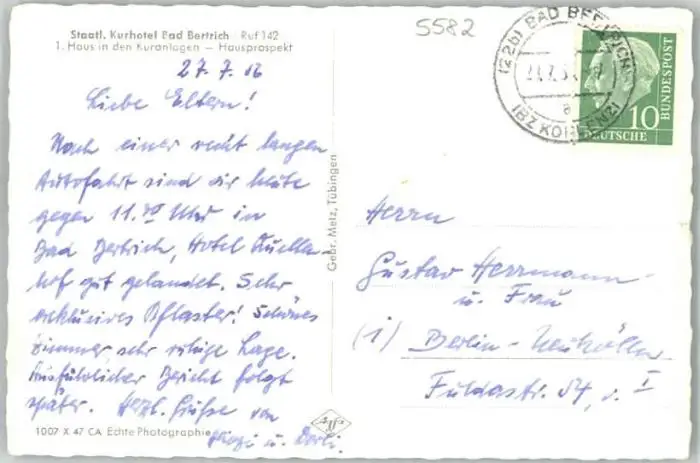 Staatl. Kurhotel Bad Bertrich Ruf 142
1. Haus in den Kuranlagen – Hausprospekt
27.7.56
Liebe Eltern!
Nach einer recht langen
Autofahrt sind wir heute
gegen 11.30 Uhr in
Bad Bertrich, Hotel Quellen-
hof gut gelandet. Sehr
exklusives Pflaster! Schönes
Zimmer, sehr ruhige Lage.
Ausführlicher Bericht folgt
später. Herzl. Grüße von
u. Dorli.
1007 X 47 CA Echte Photographie
Gebr. Metz, Tübingen
5582
(22b) BAD BERTRICH
a
(BZ KOBLENZ)
10
DEUTSCHE
BUNDESPOST
Herrn
Gustav Herrmann
u. Frau
(1) Berlin-Neukölln
Fuldastr. 54, v. I